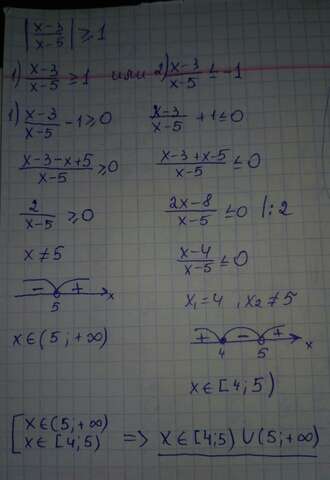 |x-3/x-5| ≥ 1
1) x-3/x-5 ≥ 1 или 2) x-3/x-5 ≤ -1
1) x-3/x-5 - 1 ≥ 0 x-3/x-5 + 1 ≤ 0
x-3-x+5/x-5 ≥ 0 x-3+x-5/x-5 ≤ 0
2/x-5 ≥ 0 2x-8/x-5 ≤ 0 |:2
x ≠ 5 x-4/x-5 ≤ 0
x₁ = 4 , x₂ ≠ 5
- + x
5
+ - + x
4 5
x ∈ (5; +∞)
x ∈ [4; 5)
[ x ∈ (5; +∞)
x ∈ [4; 5) => x ∈ [4; 5) ∪ (5; +∞)